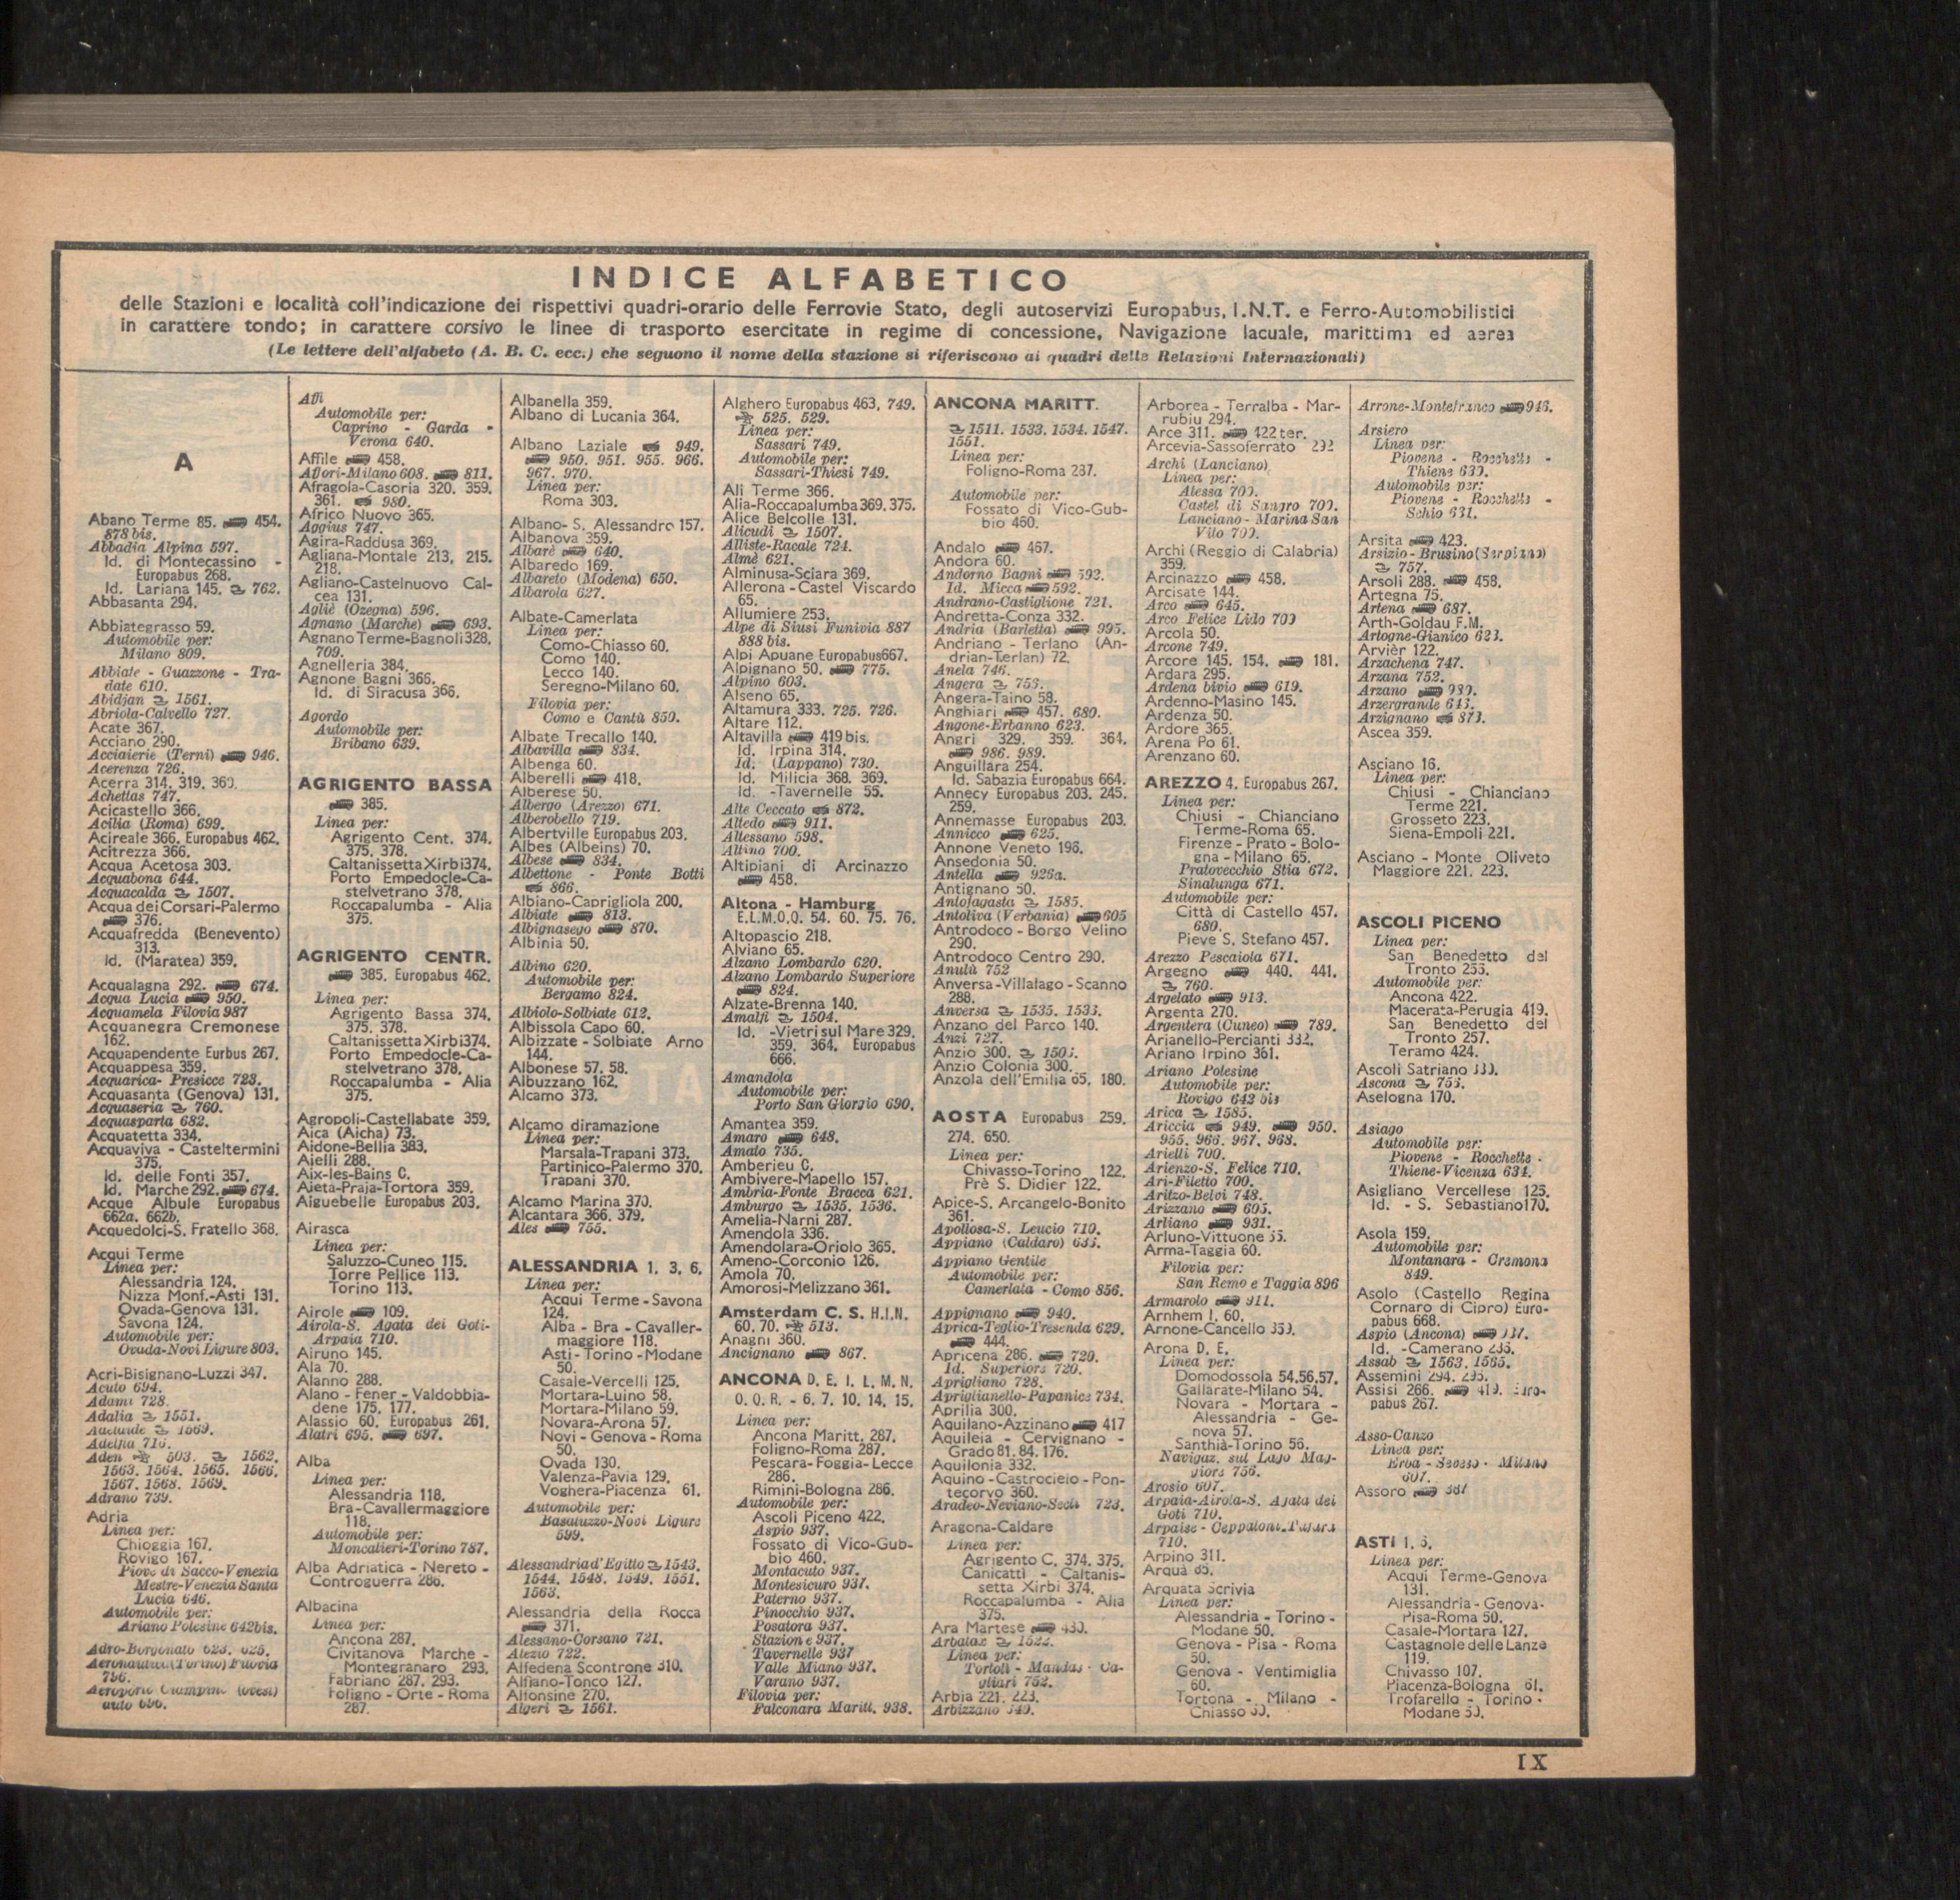 INDICE ALFABETICO
delle Stazioni e località coll'indicazione dei rispettivi quadri-orario delle Ferrovie Stato, degli autoservizi Europabus, I.N.T. e Ferro-Automobilistici
in carattere tondo; in carattere corsivo le linee di trasporto esercitate in regime di concessione, Navigazione lacuale, marittima ed aerea
(Le lettere dell'alfabeto (A. B. C. ecc.) che seguono il nome della stazione si riferiscono ai quadri delle Relazioni Internazionali)
A
Abano Terme 85. 454.
878 bis.
Abbadia Alpina 597.
Id. di Montecassino -
Europabus 268.
Id. Lariana 145. 762.
Abbasanta 294.
Abbiategrasso 59.
Automobile per:
Milano 809.
Abbiate - Guazzone - Tra-
date 610.
Abidjan 1561.
Abriola-Calvello 727.
Acate 367.
Acciano 290.
Acciaierie (Terni) 946.
Acerenza 726.
Acerra 314. 319. 360.
Achettas 747.
Acicastello 366.
Acilia (Roma) 699.
Acireale 366. Europabus 462.
Acitrezza 366.
Acqua Acetosa 303.
Acquabona 644.
Acquacalda 1507.
Acqua dei Corsari-Palermo
376.
Acquafredda (Benevento)
313.
Id. (Maratea) 359.
Acqualagna 292. 674.
Acqua Lucia 950.
Acquamela Filovia 987
Acquanegra Cremonese
162.
Acquapendente Eurbus 267.
Acquappesa 359.
Acquarica- Presicce 723.
Acquasanta (Genova) 131.
Acquaseria 760.
Acquasparta 682.
Acquatetta 334.
Acquaviva - Casteltermini
375.
Id. delle Fonti 357.
Id. Marche 292. 674.
Acque Albule Europabus
662a. 662b.
Acquedolci-S. Fratello 368.
Acqui Terme
Linea per:
Alessandria 124.
Nizza Monf.-Asti 131.
Ovada-Genova 131.
Savona 124.
Automobile per:
Ovada-Novi Ligure 803.
Acri-Bisignano-Luzzi 347.
Acuto 694.
Adami 728.
Adalia 1551.
Adelaide 1569.
Adelfia 716.
Aden 503. 1562.
1563. 1564. 1565. 1566.
1567. 1568. 1569.
Adrano 739.
Adria
Linea per:
Chioggia 167.
Rovigo 167.
Piove di Sacco-Venezia
Mestre-Venezia Santa
Lucia 646.
Automobile per:
Ariano Polesine 642bis.
Adro-Borgonato 623. 625.
Aeronautica (Torino) Filovia
796.
Aeroporto Ciampino (ovest)
auto 696.
Affi
Automobile per:
Caprino - Garda -
Verona 640.
Affile 458.
Affori-Milano 608. 811.
Afragola-Casoria 320. 359.
361. 980.
Africo Nuovo 365.
Aggius 747.
Agira-Raddusa 369.
Agliana-Montale 213. 215.
218.
Agliano-Castelnuovo Cal-
cea 131.
Agliè (Ozegna) 596.
Agnano (Marche) 693.
Agnano Terme-Bagnoli 328.
709.
Agnelleria 384.
Agnone Bagni 366.
Id. di Siracusa 366.
Agordo
Automobile per:
Bribano 639.
AGRIGENTO BASSA
385.
Linea per:
Agrigento Cent. 374.
375. 378.
Caltanissetta Xirbi 374.
Porto Empedocle-Ca-
stelvetrano 378.
Roccapalumba - Alia
375.
AGRIGENTO CENTR.
385. Europabus 462.
Linea per:
Agrigento Bassa 374.
375. 378.
Caltanissetta Xirbi 374.
Porto Empedocle-Ca-
stelvetrano 378.
Roccapalumba - Alia
375.
Agropoli-Castellabate 359.
Aica (Aicha) 73.
Aidone-Bellia 383.
Aielli 288.
Aix-les-Bains C.
Aieta-Praja-Tortora 359.
Aiguebelle Europabus 203.
Airasca
Linea per:
Saluzzo-Cuneo 115.
Torre Pellice 113.
Torino 113.
Airole 109.
Airola-S. Agata dei Goti-
Arpaia 710.
Airuno 145.
Ala 70.
Alanno 288.
Alano - Fener - Valdobbia-
dene 175. 177.
Alassio 60. Europabus 261.
Alatri 695. 697.
Alba
Linea per:
Alessandria 118.
Bra-Cavallermaggiore
118.
Automobile per:
Moncalieri-Torino 787.
Alba Adriatica - Nereto -
Controguerra 286.
Albacina
Linea per:
Ancona 287.
Civitanova Marche -
Montegranaro 293.
Fabriano 287. 293.
Foligno - Orte - Roma
287.
Albanella 359.
Albano di Lucania 364.
Albano Laziale 949.
950. 951. 955. 966.
967. 970.
Linea per:
Roma 303.
Albano- S. Alessandro 157.
Albanova 359.
Albarè 640.
Albaredo 169.
Albareto (Modena) 650.
Albarola 627.
Albate-Camerlata
Linea per:
Como-Chiasso 60.
Como 140.
Lecco 140.
Seregno-Milano 60.
Filovia per:
Como e Cantù 850.
Albate Trecallo 140.
Albavilla 834.
Albenga 60.
Alberelli 418.
Alberese 50.
Albergo (Arezzo) 671.
Alberobello 719.
Albertville Europabus 203.
Albes (Albeins) 70.
Albese 834.
Albettone - Ponte Botti
866.
Albiano-Caprigliola 200.
Albiate 813.
Albignasego 870.
Albinia 50.
Albino 620.
Automobile per:
Bergamo 824.
Albiolo-Solbiate 612.
Albissola Capo 60.
Albizzate - Solbiate Arno
144.
Albonese 57. 58.
Albuzzano 162.
Alcamo 373.
Alcamo diramazione
Linea per:
Marsala-Trapani 373.
Partinico-Palermo 370.
Trapani 370.
Alcamo Marina 370.
Alcantara 366. 379.
Ales 755.
ALESSANDRIA 1. 3. 6.
Linea per:
Acqui Terme - Savona
124.
Alba - Bra - Cavaller-
maggiore 118.
Asti - Torino - Modane
50.
Casale-Vercelli 125.
Mortara-Luino 58.
Mortara-Milano 59.
Novara-Arona 57.
Novi - Genova - Roma
50.
Ovada 130.
Valenza-Pavia 129.
Voghera-Piacenza 61.
Automobile per:
Basaluzzo-Novi Ligure
599.
Alessandria d'Egitto 1543.
1544. 1548. 1549. 1551.
1563.
Alessandria della Rocca
371.
Alessano-Corsano 721.
Alezio 722.
Alfedena Scontrone 310.
Alfiano-Tonco 127.
Alfonsine 270.
Algeri 1561.
Alghero Europabus 463. 749.
525. 529.
Linea per:
Sassari 749.
Automobile per:
Sassari-Thiesi 749.
Ali Terme 366.
Alia-Roccapalumba 369. 375.
Alice Belcolle 131.
Alicudi 1507.
Alliste-Racale 724.
Almè 621.
Alminusa-Sciara 369.
Allerona - Castel Viscardo
65.
Allumiere 253.
Alpe di Siusi Funivia 887
888 bis.
Alpi Apuane Europabus 667.
Alpignano 50. 775.
Alpino 603.
Alseno 65.
Altamura 333. 725. 726.
Altare 112.
Altavilla 419 bis.
Id. Irpina 314.
Id. (Lappano) 730.
Id. Milicia 368. 369.
Id. -Tavernelle 55.
Alte Ceccato 872.
Altedo 911.
Altessano 598.
Altino 700.
Altipiani di Arcinazzo
458.
Altona - Hamburg
E.L.M.O.Q. 54. 60. 75. 76.
Altopascio 218.
Alviano 65.
Alzano Lombardo 620.
Alzano Lombardo Superiore
824.
Alzate-Brenna 140.
Amalfi 1504.
Id. -Vietri sul Mare 329.
359. 364. Europabus
666.
Amandola
Automobile per:
Porto San Giorgio 690.
Amantea 359.
Amaro 648.
Amato 735.
Amberieu C.
Ambivere-Mapello 157.
Ambria-Fonte Bracca 621.
Amburgo 1535. 1536.
Amelia-Narni 287.
Amendola 336.
Amendolara-Oriolo 365.
Ameno-Corconio 126.
Amola 70.
Amorosi-Melizzano 361.
Amsterdam C. S. H.I.N.
60. 70. 513.
Anagni 360.
Ancignano 867.
ANCONA D. E. I. L. M. N.
O. Q. R. - 6. 7. 10. 14. 15.
Linea per:
Ancona Maritt. 287.
Foligno-Roma 287.
Pescara-Foggia-Lecce
286.
Rimini-Bologna 286.
Automobile per:
Ascoli Piceno 422.
Aspio 937.
Fossato di Vico-Gub-
bio 460.
Montacuto 937.
Montesicuro 937.
Paterno 937.
Pinocchio 937.
Posatora 937.
Stazione 937.
Tavernelle 937
Valle Miano 937.
Varano 937.
Filovia per:
Falconara Maritt. 938.
ANCONA MARITT.
1511. 1533. 1534. 1547.
1551.
Linea per:
Foligno-Roma 287.
Automobile per:
Fossato di Vico-Gub-
bio 460.
Andalo 467.
Andora 60.
Andorno Bagni 592.
Id. Micca 592.
Andrano-Castiglione 721.
Andretta-Conza 332.
Andria (Barletta) 995.
Andriano - Terlano (An-
drian-Terlan) 72.
Anela 746.
Angera 756.
Angera-Taino 58.
Anghiari 457. 680.
Angone-Erbanno 623.
Angri 329. 359. 364.
986. 989.
Anguillara 254.
Id. Sabazia Europabus 664.
Annecy Europabus 203. 245.
259.
Annemasse Europabus 203.
Annicco 625.
Annone Veneto 196.
Ansedonia 50.
Antella 926a.
Antignano 50.
Antofagasta 1585.
Antoliva (Verbania) 605
Antrodoco - Borgo Velino
290.
Antrodoco Centro 290.
Anulù 752
Anversa-Villalago - Scanno
288.
Anversa 1535. 1536.
Anzano del Parco 140.
Anzi 727.
Anzio 300. 1506.
Anzio Colonia 300.
Anzola dell'Emilia 65. 180.
AOSTA Europabus 259.
274. 650.
Linea per:
Chivasso-Torino 122.
Prè S. Didier 122.
Apice-S. Arcangelo-Bonito
361.
Apollosa-S. Leucio 710.
Appiano (Caldaro) 635.
Appiano Gentile
Automobile per:
Camerlata - Como 856.
Appignano 940.
Aprica-Teglio-Tresenda 629.
444.
Apricena 286. 720.
Id. Superiore 720.
Aprigliano 728.
Apriglianello-Papanice 734.
Aprilia 300.
Aquilano-Azzinano 417
Aquileia - Cervignano -
Grado 81. 84. 176.
Aquilonia 332.
Aquino - Castrocielo - Pon-
tecorvo 360.
Aradeo-Neviano-Seclì 723.
Aragona-Caldare
Linea per:
Agrigento C. 374. 375.
Canicattì - Caltanis-
setta Xirbi 374.
Roccapalumba - Alia
375.
Ara Martese 430.
Arbatax 1522.
Linea per:
Tortolì - Mandas - Ca-
gliari 752.
Arbia 221. 223.
Arbizzano 649.
Arborea - Terralba - Mar-
rubiu 294.
Arce 311. 422 ter.
Arcevia-Sassoferrato 292
Archi (Lanciano)
Linea per:
Atessa 700.
Castel di Sangro 700.
Lanciano - Marina San
Vito 700.
Archi (Reggio di Calabria)
359.
Arcinazzo 458.
Arcisate 144.
Arco 645.
Arco Felice Lido 709
Arcola 50.
Arcone 749.
Arcore 145. 154. 181.
Ardara 295.
Ardena bivio 619.
Ardenno-Masino 145.
Ardenza 50.
Ardore 365.
Arena Po 61.
Arenzano 60.
AREZZO 4. Europabus 267.
Linea per:
Chiusi - Chianciano
Terme-Roma 65.
Firenze - Prato - Bolo-
gna - Milano 65.
Pratovecchio Stia 672.
Sinalunga 671.
Automobile per:
Città di Castello 457.
680.
Pieve S. Stefano 457.
Arezzo Pescaiola 671.
Argegno 440. 441.
760.
Argelato 913.
Argenta 270.
Argentera (Cuneo) 789.
Arianello-Percianti 332.
Ariano Irpino 361.
Ariano Polesine
Automobile per:
Rovigo 642 bis
Arica 1585.
Ariccia 949. 950.
955. 966. 967. 968.
Arielli 700.
Arienzo-S. Felice 710.
Ari-Filetto 700.
Aritzo-Belvì 748.
Arizzano 605.
Arliano 931.
Arluno-Vittuone 55.
Arma-Taggia 60.
Filovia per:
San Remo e Taggia 896
Armarolo 911.
Arnhem I. 60.
Arnone-Cancello 359.
Arona D. E.
Linea per:
Domodossola 54.56.57.
Gallarate-Milano 54.
Novara - Mortara -
Alessandria - Ge-
nova 57.
Santhià-Torino 56.
Navigaz. sul Lago Mag-
giore 756.
Arosio 607.
Arpaia-Airola-S. Agata dei
Goti 710.
Arpaise - Ceppaloni
710.
Arpino 311.
Arquà 65.
Arquata Scrivia
Linea per:
Alessandria - Torino -
Modane 50.
Genova - Pisa - Roma
50.
Genova - Ventimiglia
60.
Tortona - Milano -
Chiasso 60.
Arrone-Montefranco 946.
Arsiero
Linea per:
Piovene - Rocchette -
Thiene 630.
Automobile per:
Piovene - Rocchette -
Schio 631.
Arsita 423.
Arsizio - Brusino (Serpiano)
757.
Arsoli 288. 458.
Artegna 75.
Artena 687.
Arth-Goldau F.M.
Artogne-Gianico 623.
Arvièr 122.
Arzachena 747.
Arzana 752.
Arzano 980.
Arzergrande 646.
Arzignano 873.
Ascea 359.
Asciano 16.
Linea per:
Chiusi - Chianciano
Terme 221.
Grosseto 223.
Siena-Empoli 221.
Asciano - Monte Oliveto
Maggiore 221. 223.
ASCOLI PICENO
Linea per:
San Benedetto del
Tronto 256.
Automobile per:
Ancona 422.
Macerata-Perugia 419.
San Benedetto del
Tronto 257.
Teramo 424.
Ascoli Satriano 330.
Ascona 756.
Aselogna 170.
Asiago
Automobile per:
Piovene - Rocchette -
Thiene-Vicenza 631.
Asigliano Vercellese 125.
Id. - S. Sebastiano 170.
Asola 159.
Automobile per:
Montanara - Cremona
849.
Asolo (Castello Regina
Cornaro di Cipro) Euro-
pabus 668.
Aspio (Ancona) 937.
Id. -Camerano 286.
Assab 1563. 1565.
Assemini 294. 295.
Assisi 266. 419. Euro-
pabus 267.
Asso-Canzo
Linea per:
Erba - Seveso - Milano
607.
Assoro 387
ASTI 1. 6.
Linea per:
Acqui Terme-Genova
131.
Alessandria - Genova-
Pisa-Roma 50.
Casale-Mortara 127.
Castagnole delle Lanze
119.
Chivasso 107.
Piacenza-Bologna 61.
Trofarello - Torino -
Modane 50.
IX